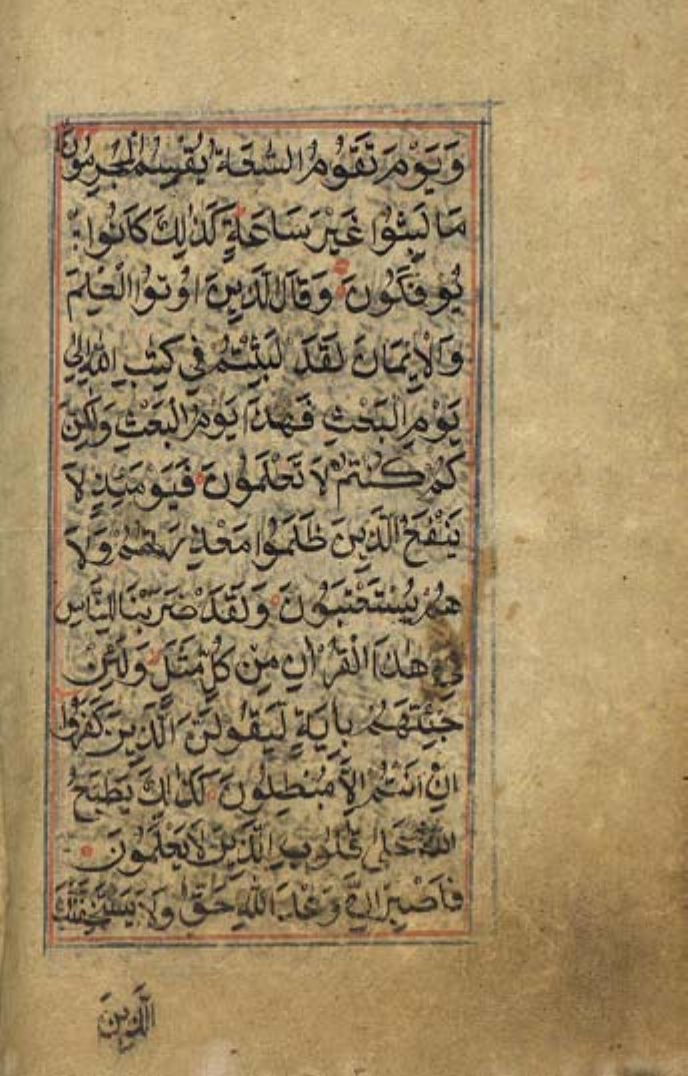 وَيَوْمَ تَقُوْمُ السَّعَةُ يُقْسِمُ الْمُجْرِمُوْنَ
مَا لَبِثُوْا غَيْرَ سَاعَةٍ كَذٰلِكَ كَانُوْا
يُوْفَكُوْنَ وَقَالَ الَّذِيْنَ اُوْتُوا الْعِلْمَ
وَالْاِيْمَانَ لَقَدْ لَبِثْتُمْ فِيْ كِتٰبِ اللّٰهِ اِلٰى
يَوْمِ الْبَعْثِ فَهٰذَا يَوْمُ الْبَعْثِ وَلٰكِنَّ
كُمْ كُنْتُمْ لَا تَعْلَمُوْنَ فَيَوْمَئِذٍ لَا
يَنْفَعُ الَّذِيْنَ ظَلَمُوْا مَعْذِرَتُهُمْ وَلَا
هُمْ يُسْتَعْتَبُوْنَ وَلَقَدْ ضَرَبْنَا لِلنَّاسِ
فِيْ هٰذَا الْقُرْاٰنِ مِنْ كُلِّ مَثَلٍ وَلَئِنْ
جِئْتَهُمْ بِاٰيَةٍ لَيَقُوْلَنَّ الَّذِيْنَ كَفَرُوْا
اِنْ اَنْتُمْ اِلَّا مُبْطِلُوْنَ كَذٰلِكَ يَطْبَعُ
اللّٰهُ عَلٰى قُلُوْبِ الَّذِيْنَ لَا يَعْلَمُوْنَ
فَاصْبِرْ اِنَّ وَعْدَ اللّٰهِ حَقٌّ وَلَا يَسْتَخِفَّنَّكَ
الَّذِيْنَ